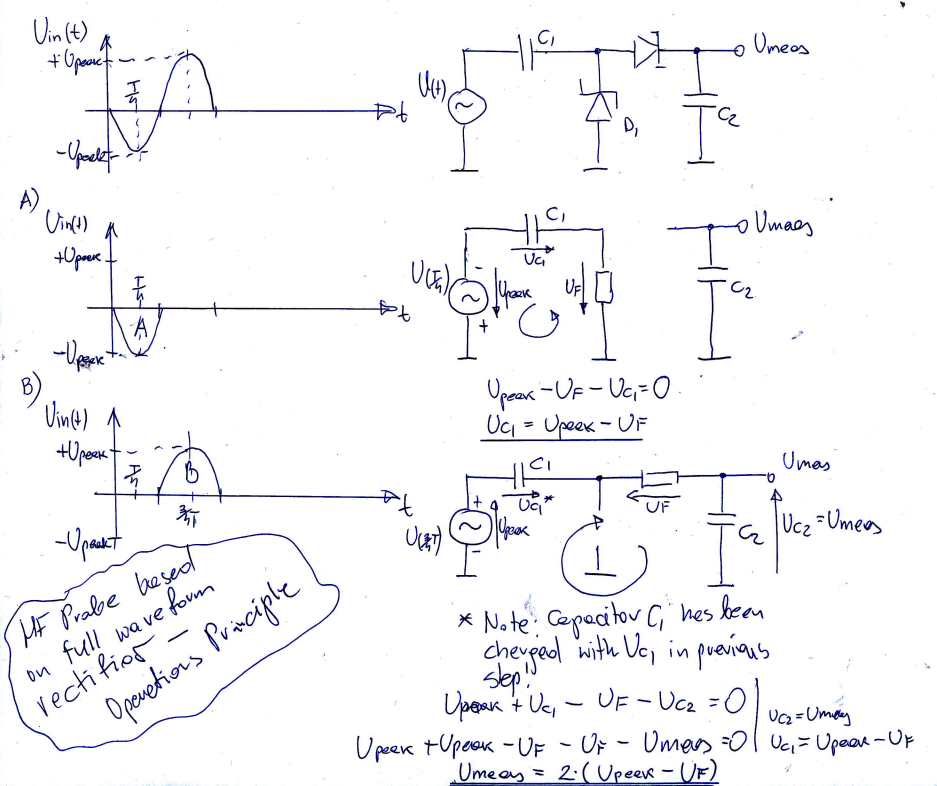 Uin(t)
+Upeak
T/4
-Upeak
t
U(t)
C1
D1
C2
Umeas
A)
Uin(t)
+Upeak
T/4
A
-Upeak
t
U(T/4)
-
+
Upeak
C1
UC1
UF
C2
Umeas
Upeak - UF - UC1 = 0
UC1 = Upeak - UF
B)
Uin(t)
+Upeak
T/4
B
3/4T
-Upeak
t
U(3/4T)
+
-
Upeak
C1
UC1*
UF
C2
Umeas
UC2 = Umeas
HF Probe based
on full waveform
rectifier -
Operations Principle
* Note: Capacitor C1 has been
charged with UC1 in previous
step!
Upeak + UC1 - UF - UC2 = 0
UC2 = Umeas
Upeak + Upeak - UF - UF - Umeas = 0
UC1 = Upeak - UF
Umeas = 2·(Upeak - UF)